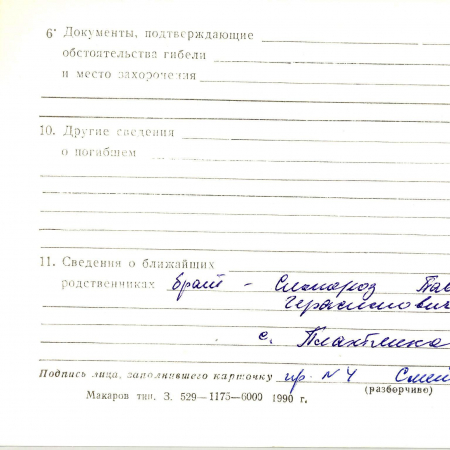 6. Документы, подтверждающие
обстоятельства гибели
и место захоронения
10. Другие сведения
о погибшем
11. Сведения о ближайших
родственниках брат -
Герасимович
с. Плахтянка
Подпись лица, заполнявшего карточку гр. N 4
(разборчиво)
Макаров тип. З. 529—1175—6000 1990 г.